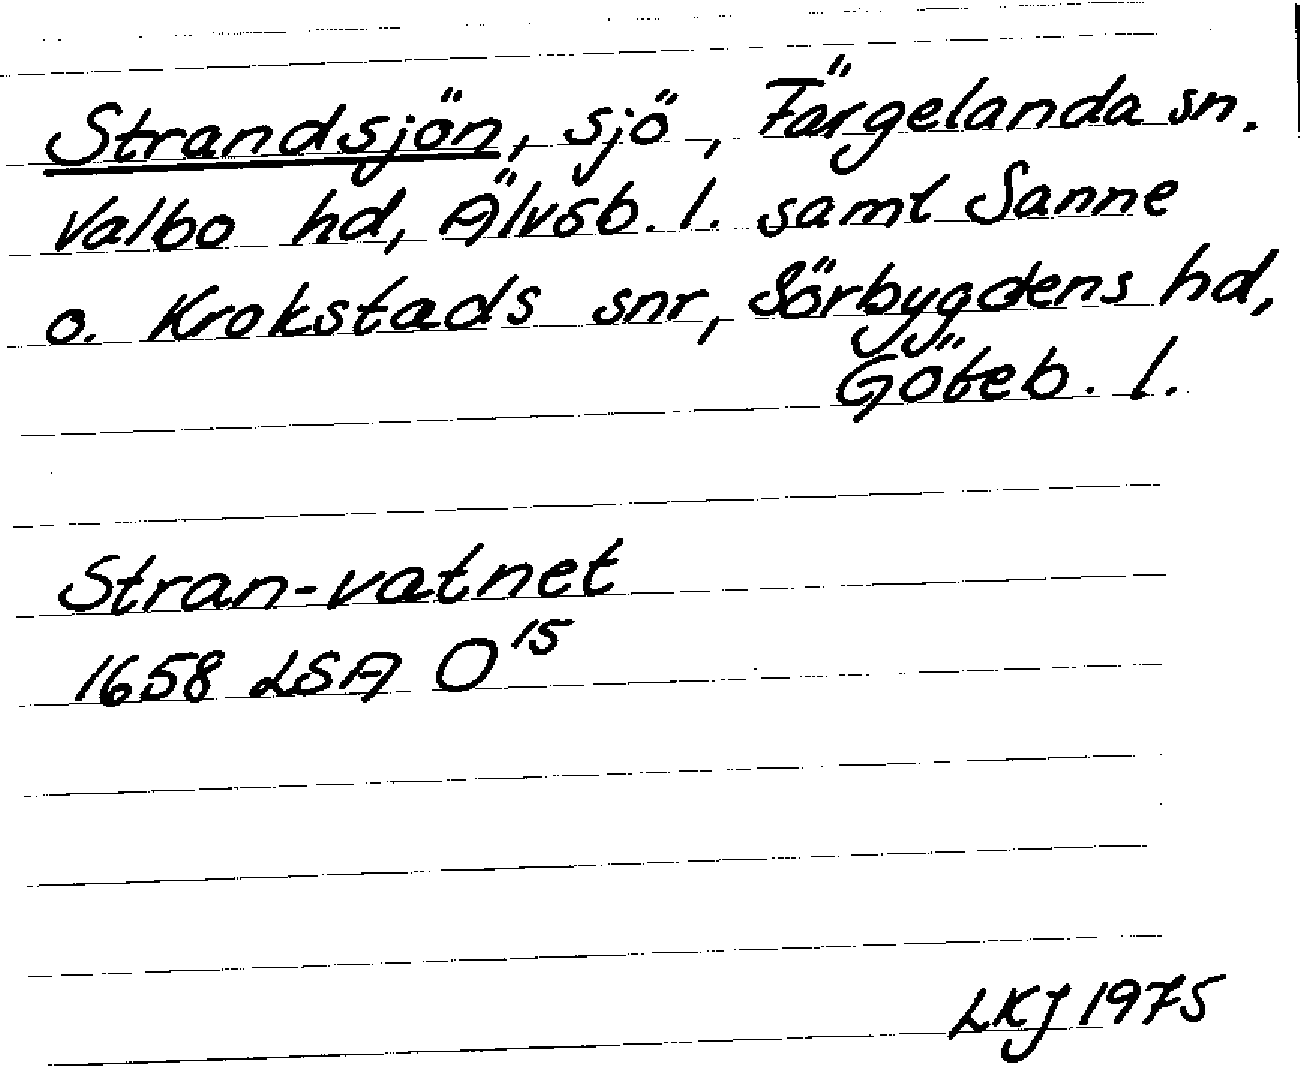 Strandsjön, sjö, Färgelanda sn.
Valbo hd, Älvsb. l. samt Sanne
o. Krokstads snr, Sörbygdens hd,
Göteb. l.
Stran-vatnet
1658 LSA O 15
LKJ 1975